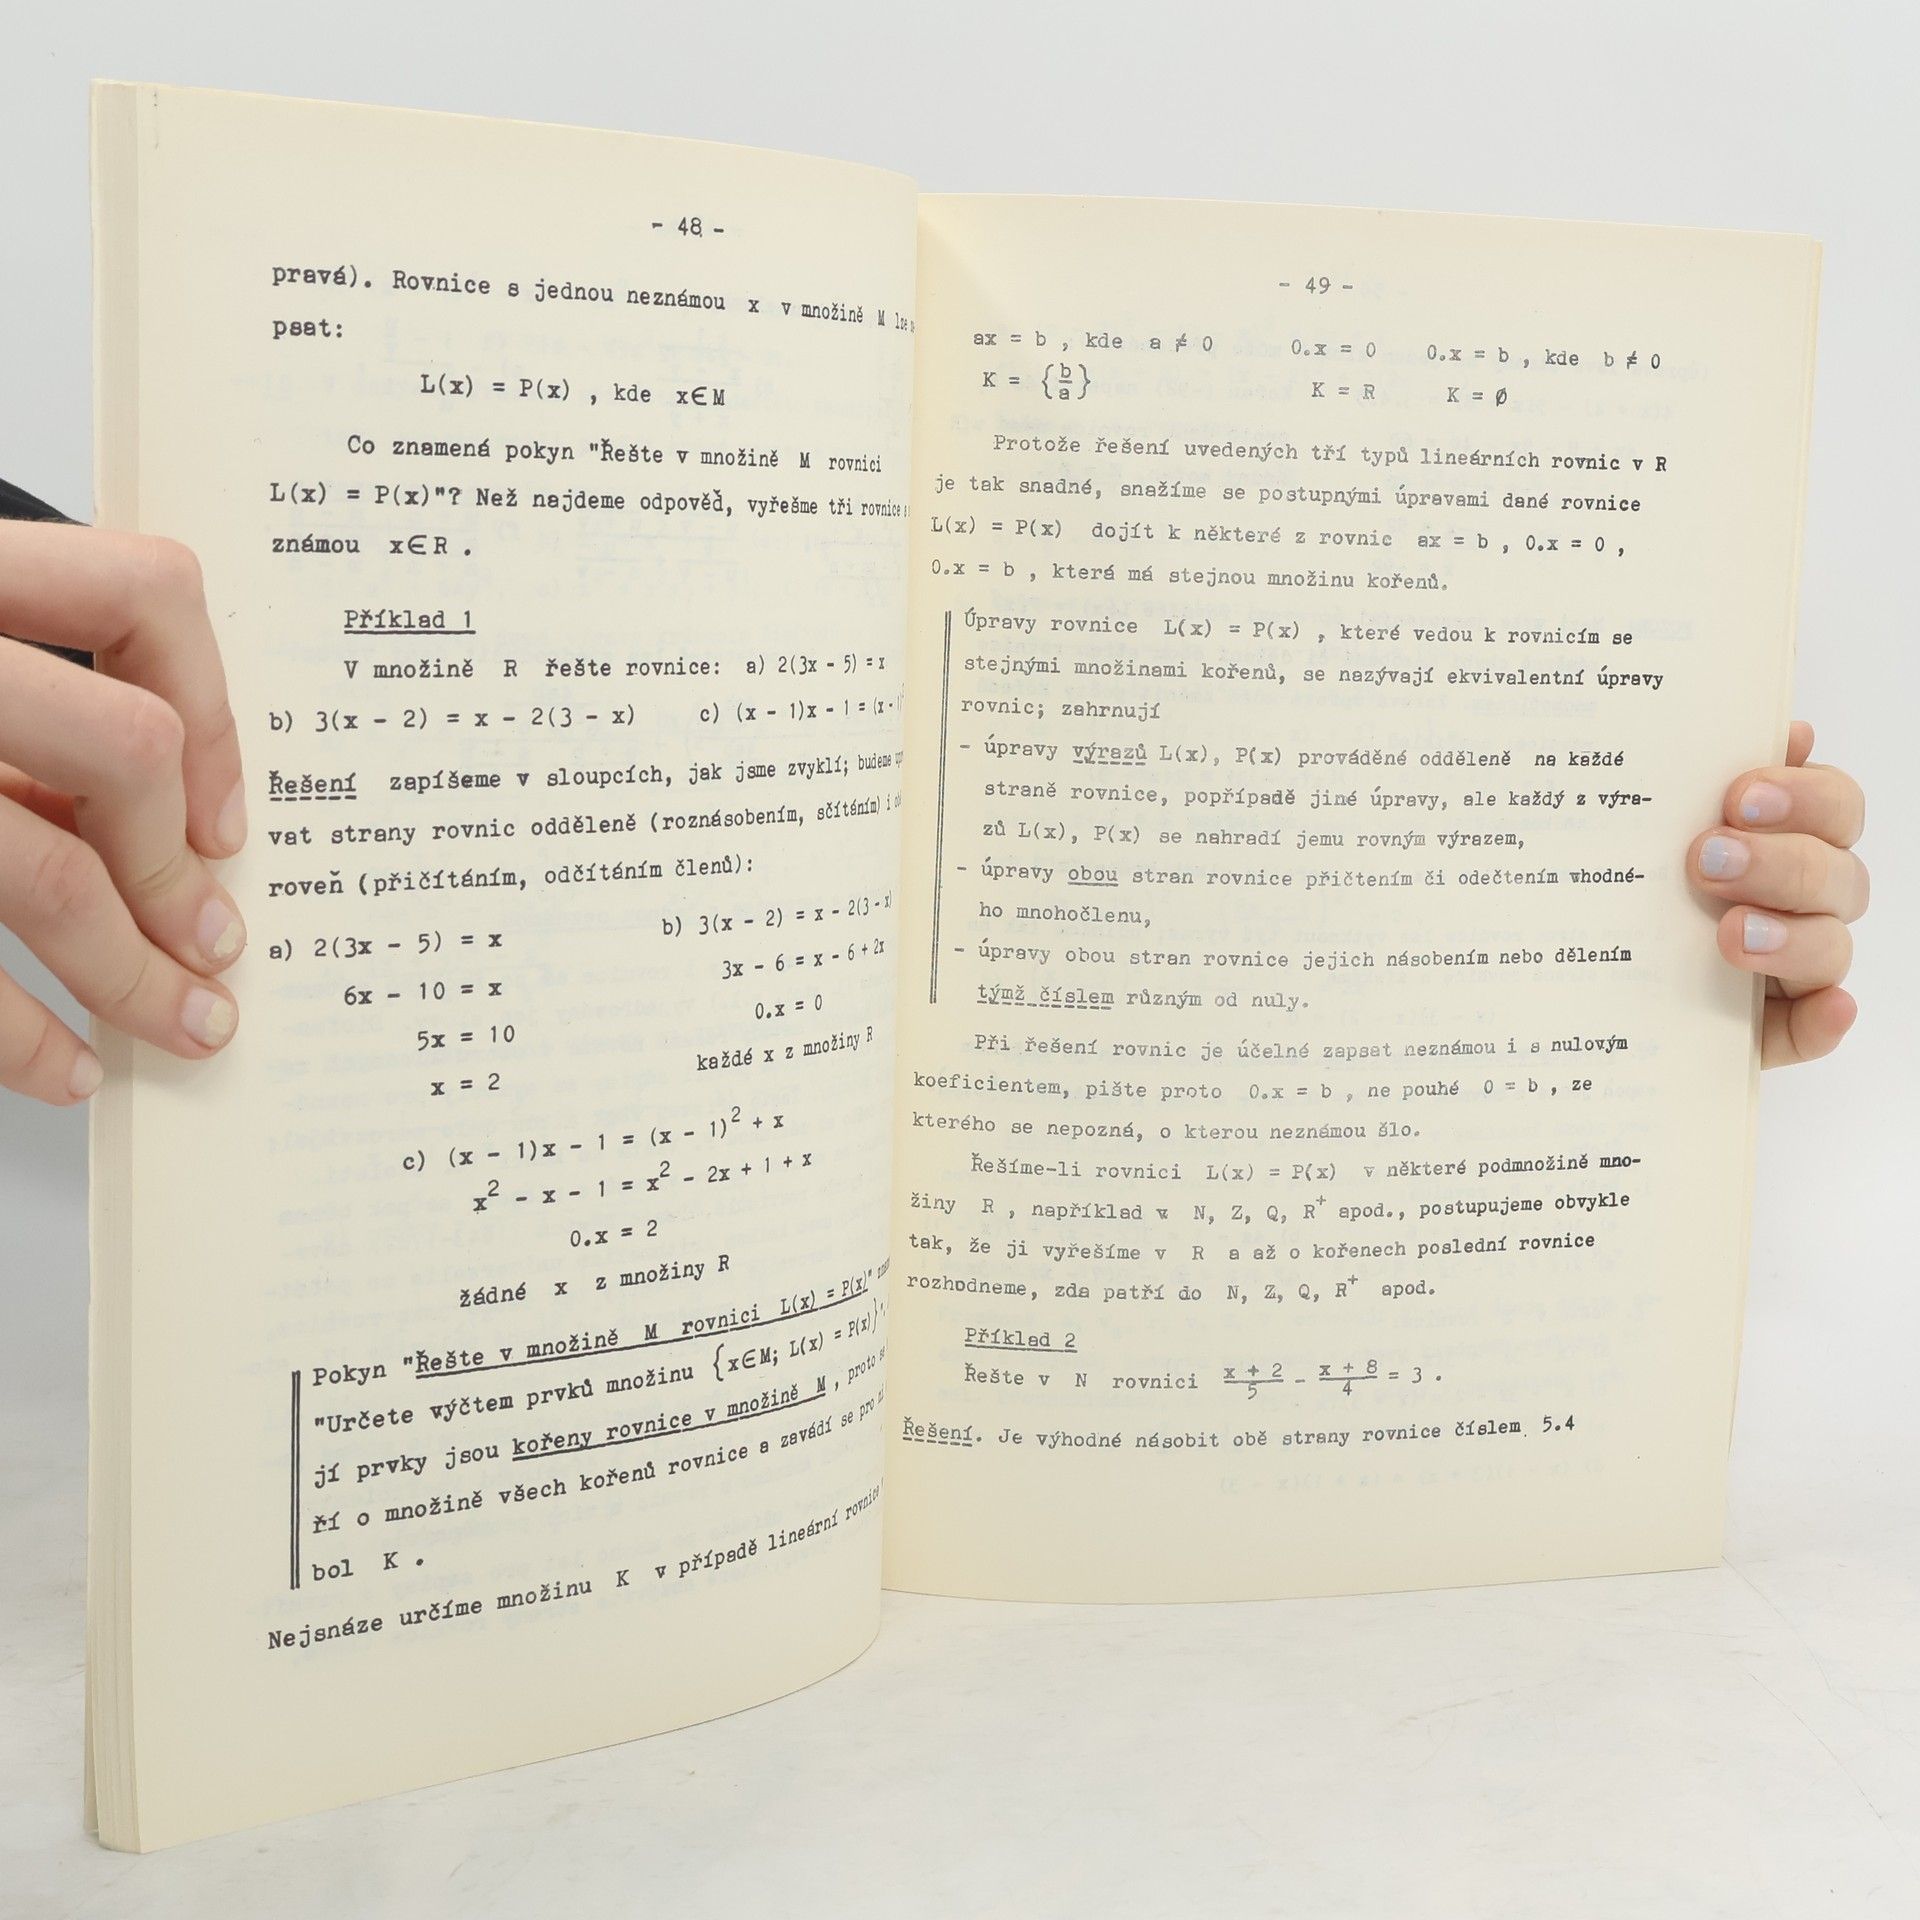 - 48 -
pravá). Rovnice s jednou neznámou x v množině M lze
psat:
L(x) = P(x) , kde x∈M
Co znamená pokyn "Řešte v množině M rovnici
L(x) = P(x)"? Než najdeme odpověď, vyřešme tři rovnice s
známou x∈R .
Příklad 1
V množině R řešte rovnice: a) 2(3x - 5) = x
b) 3(x - 2) = x - 2(3 - x) c) (x - 1)x - 1 = (x - 1)
Řešení zapíšeme v sloupcích, jak jsme zvyklí; budeme
vat strany rovnic odděleně (roznásobením, sčítáním) i
roveň (přičítáním, odčítáním členů):
a) 2(3x - 5) = x b) 3(x - 2) = x - 2(3 - x)
6x - 10 = x 3x - 6 = x - 6 + 2x
5x = 10 0.x = 0
x = 2 každé x z množiny R
c) (x - 1)x - 1 = (x - 1)² + x
x² - x - 1 = x² - 2x + 1 + x
0.x = 2
žádné x z množiny R
Pokyn "Řešte v množině M rovnici L(x) = P(x)"
"Určete výčtem prvků množinu {x∈M; L(x) = P(x)}"
jí prvky jsou kořeny rovnice v množině M, proto
ří o množině všech kořenů rovnice a zavádí se pro
bol K .
Nejsnáze určíme množinu K v případě lineární rovnice
- 49 -
ax = b , kde a ≠ 0 0.x = 0 0.x = b , kde b ≠ 0
K = {b/a} K = R K = ∅
Protože řešení uvedených tří typů lineárních rovnic v R
je tak snadné, snažíme se postupnými úpravami dané rovnice
L(x) = P(x) dojít k některé z rovnic ax = b , 0.x = 0 ,
0.x = b , která má stejnou množinu kořenů.
Úpravy rovnice L(x) = P(x) , které vedou k rovnicím se
stejnými množinami kořenů, se nazývají ekvivalentní úpravy
rovnic; zahrnují
- úpravy výrazů L(x), P(x) prováděné odděleně na každé
straně rovnice, popřípadě jiné úpravy, ale každý z výra-
zů L(x), P(x) se nahradí jemu rovným výrazem,
- úpravy obou stran rovnice přičtením či odečtením vhodné-
ho mnohočlenu,
- úpravy obou stran rovnice jejich násobením nebo dělením
týmž číslem různým od nuly.
Při řešení rovnic je účelné zapsat neznámou i s nulovým
koeficientem, pište proto 0.x = b , ne pouhé 0 = b , ze
kterého se nepozná, o kterou neznámou šlo.
Řešíme-li rovnici L(x) = P(x) v některé podmnožině mno-
žiny R , například v N, Z, Q, R⁺ apod., postupujeme obvykle
tak, že ji vyřešíme v R a až o kořenech poslední rovnice
rozhodneme, zda patří do N, Z, Q, R⁺ apod.
Příklad 2
Řešte v N rovnici (x + 2)/5 - (x + 8)/4 = 3 .
Řešení. Je výhodné násobit obě strany rovnice číslem 5.4